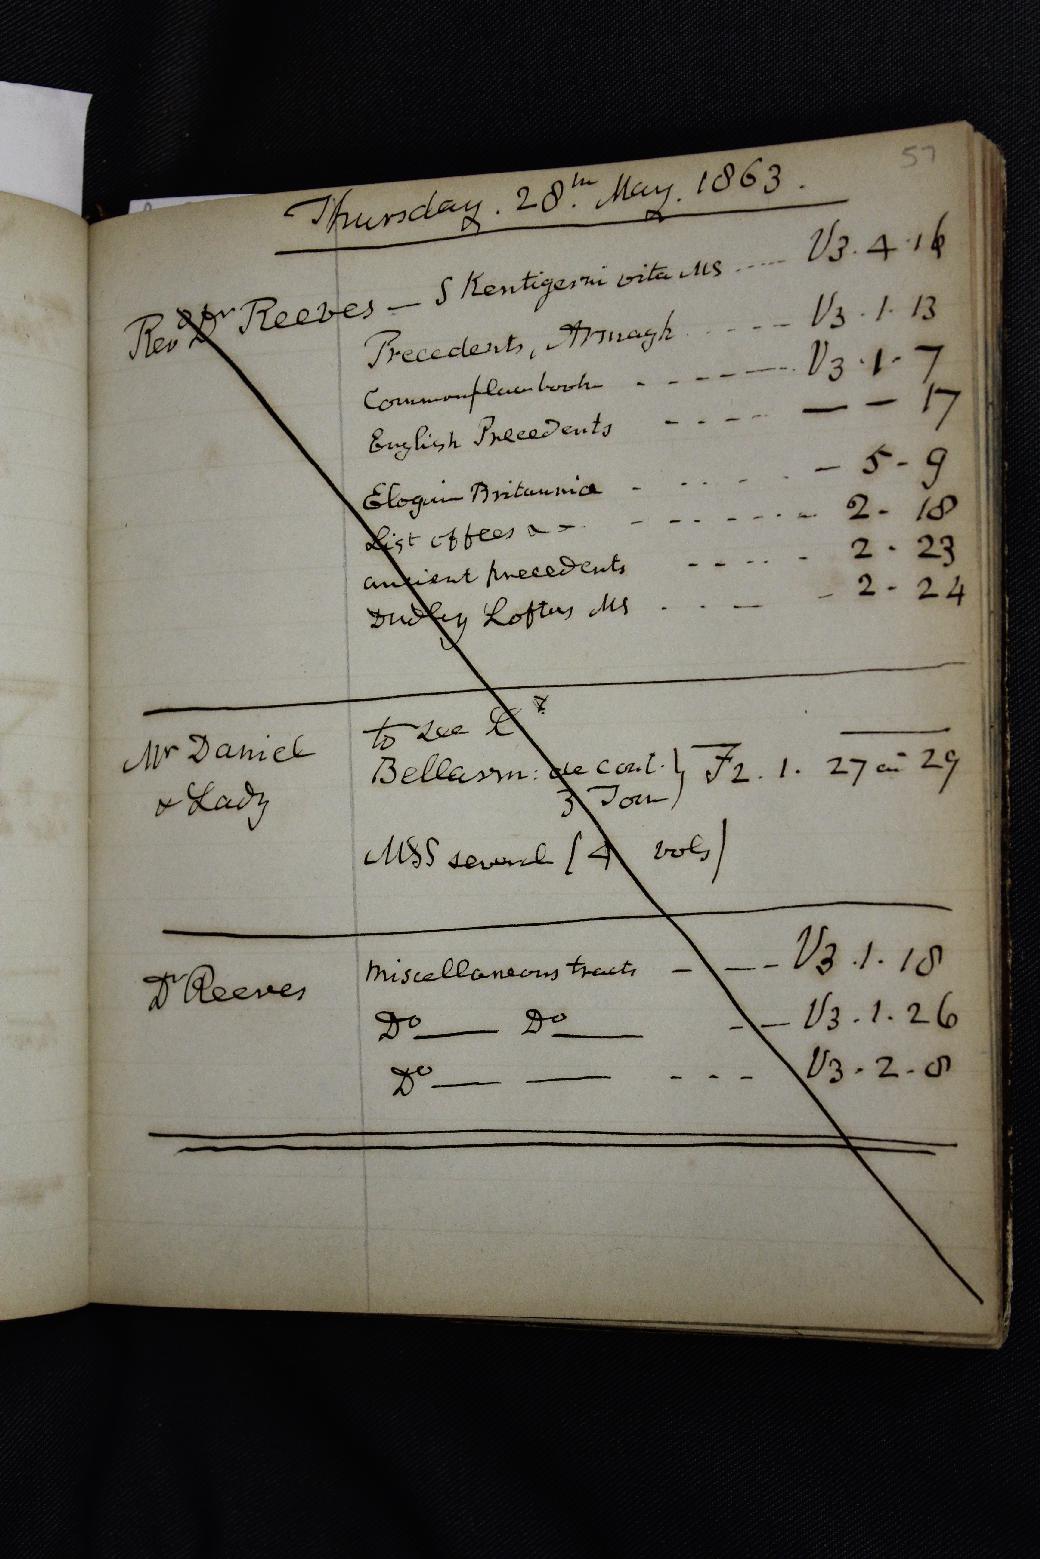 57
Thursday. 28th. May. 1863.
Revd Dr Reeves — S Kentigerni vita MS ---- V3. 4. 16
Precedents, Armagh ----- V3. 1. 13
Commonplacebook ------ V3. 1. 7
English Precedents ---- — — 17
Elogium Britannia ----- — 5 - 9
List offices & - ------- 2 - 18
ancient precedents ----- 2 - 23
Dudley Loftus MS ---- 2 - 24
to see
Mr Daniel
& Lady
Bellarm: de cont. } F2. 1. 27 a 29
3 Tom
MSS several (4 vols)
Dr Reeves Miscellaneous tracts ---- V3. 1. 18
Do —— Do —— --- V3. 1. 26
Do —— —— --- V3. 2. 8